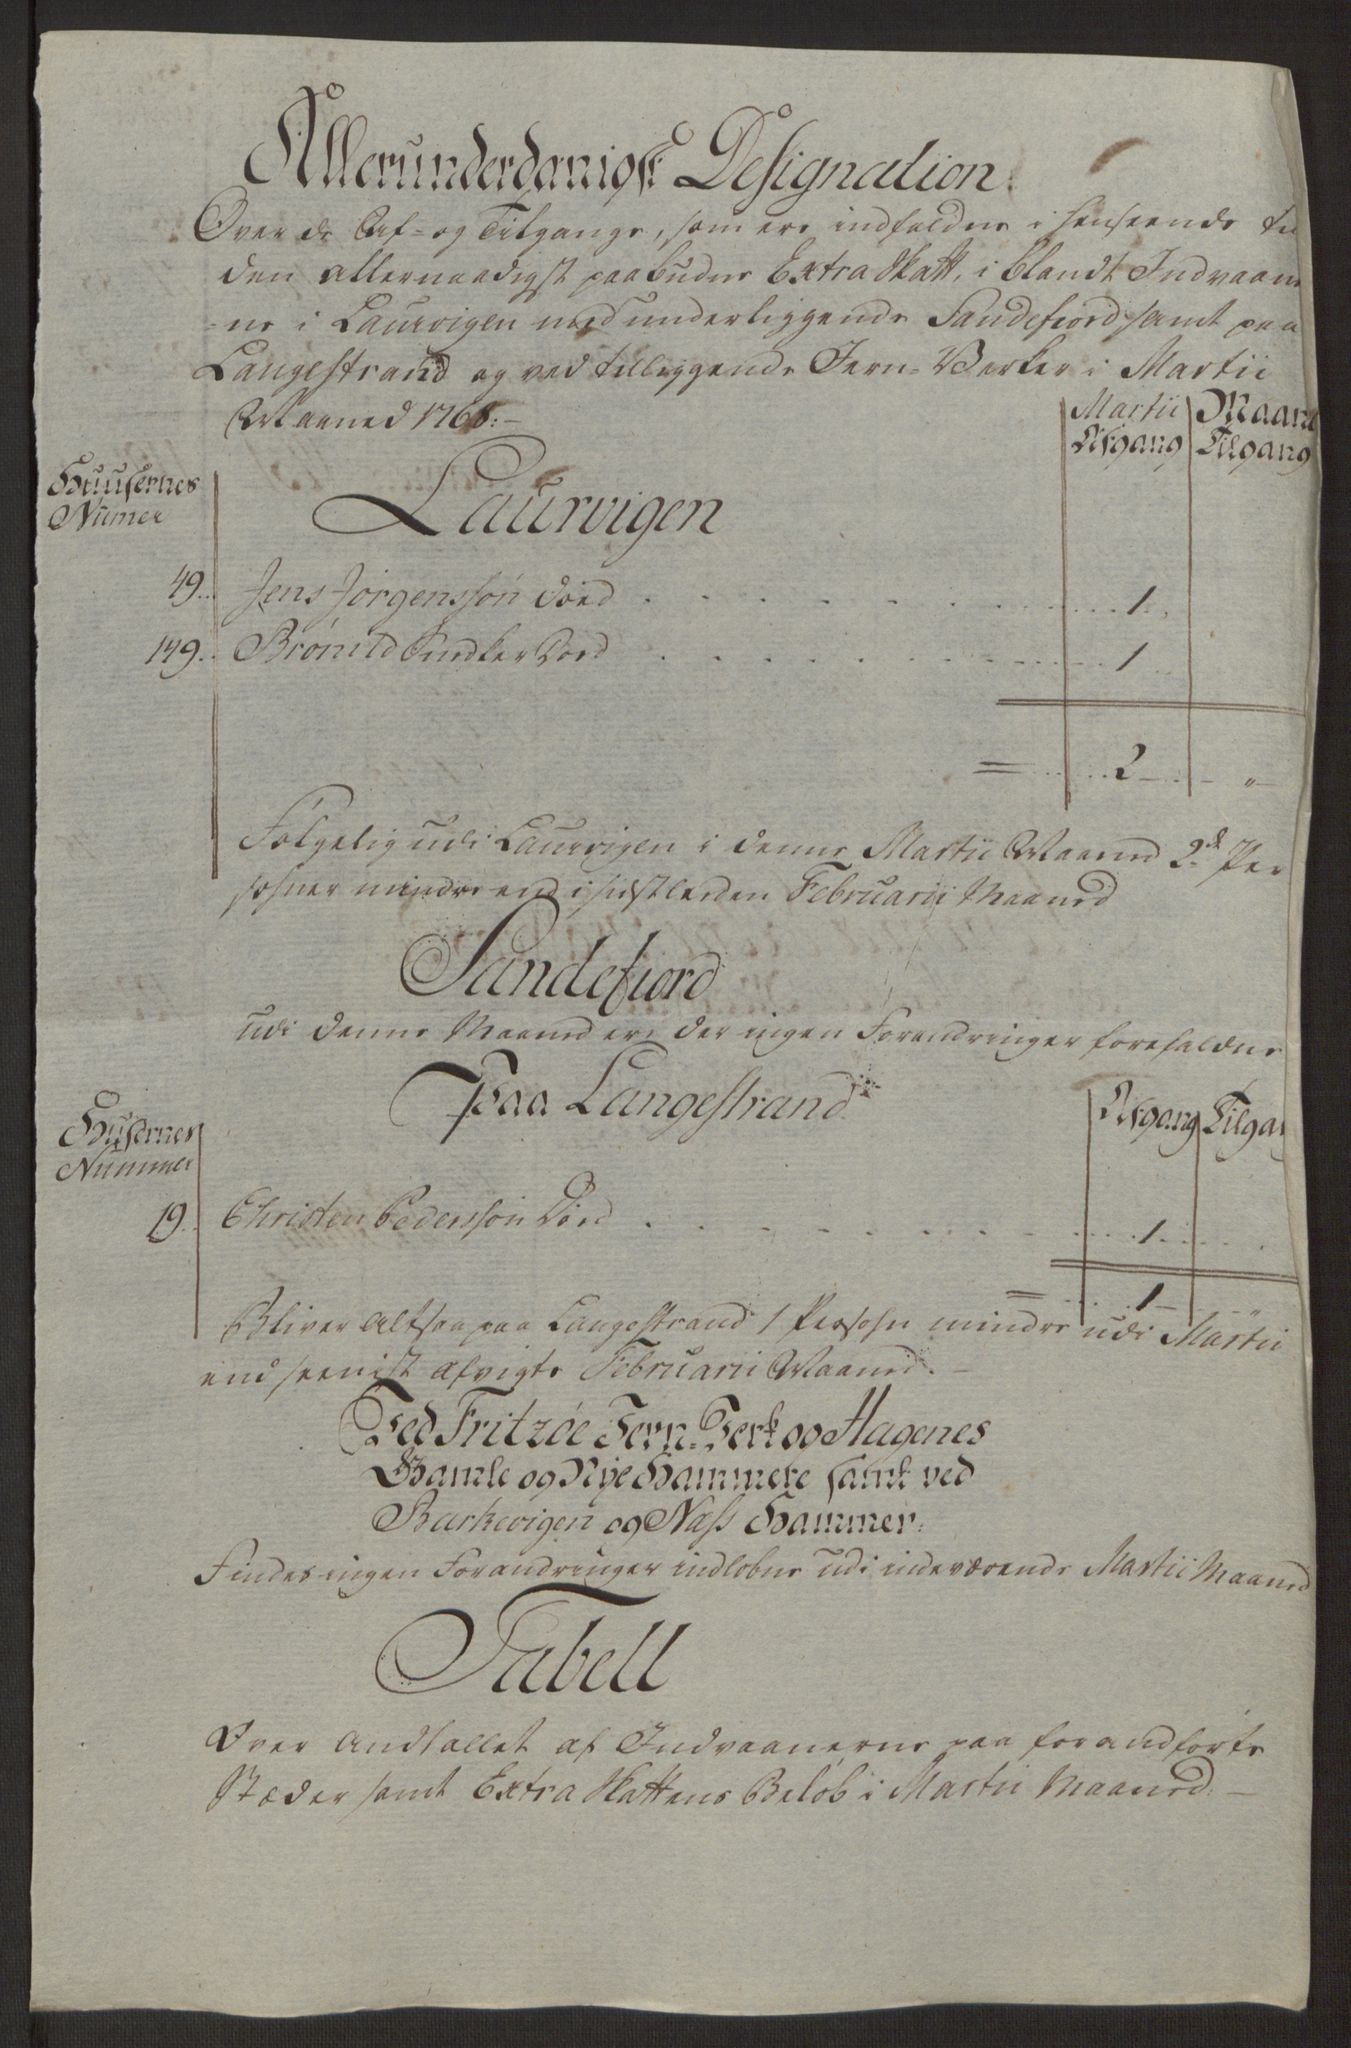 Allerunderdanigst Designation
Over de Af- og Tilgange, som ere indfaldne i henseende til
den allernaadigst paabudne Extra Skatt, i blandt Indvaaner
-ne i Laurvigen med underliggende Sandefiord samt paa
Langestrand og ved tilliggende Jern-Verker i Martii
Maaned 1768.-
Martii Maaned
Afgang Tilgang
Huusernes
Numer
Laurvigen
49. Jens Jørgenssøn Død 1
149. Brønild Snedker Død 1
= 2 "
Følgelig udi Laurvigen i denne Martii Maaned 2de Per
sohner mindre end i sidstleden Februarii Maaned
Sandefiord
udi denne Maaned ere der ingen Forandringer forefaldne
Paa Langestrand
Afgang Tilgang
Husernes
Nummer
19. Christen Pederssøn Død 1
= 1 "
Bliver altsaa paa Langestrand 1 Persohn mindre udi Martii
end seenist afvigte Februarii Maaned.-
Ved Fritzøe Jern-Verk og Hagenes
Gamle og Nye Hammere samt ved
Barkevigen og Næss Hammer.
Findes ingen Forandringer indløbne udi indeværende Martii Maaned
Tabell
Over Andtallet af Indvaanerne paa forandførte
Stæder samt Extra Skattens Beløb i Martii Maaned.-